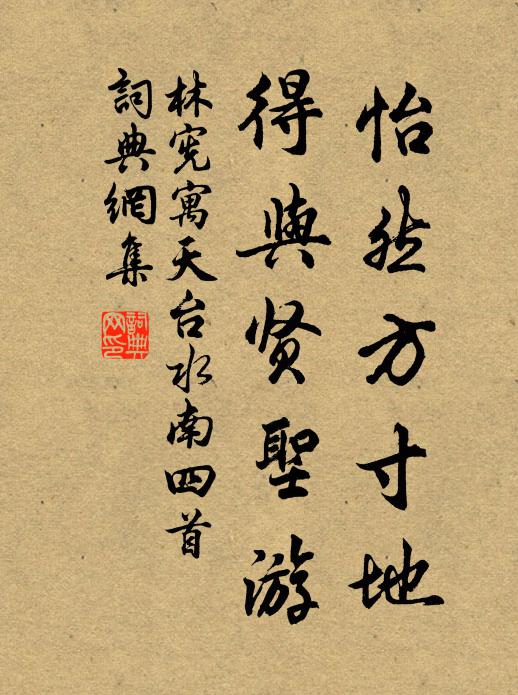 怡然方寸地
得與贤聖游
林宪寓天台水南四首
詞典網集
詞典网印